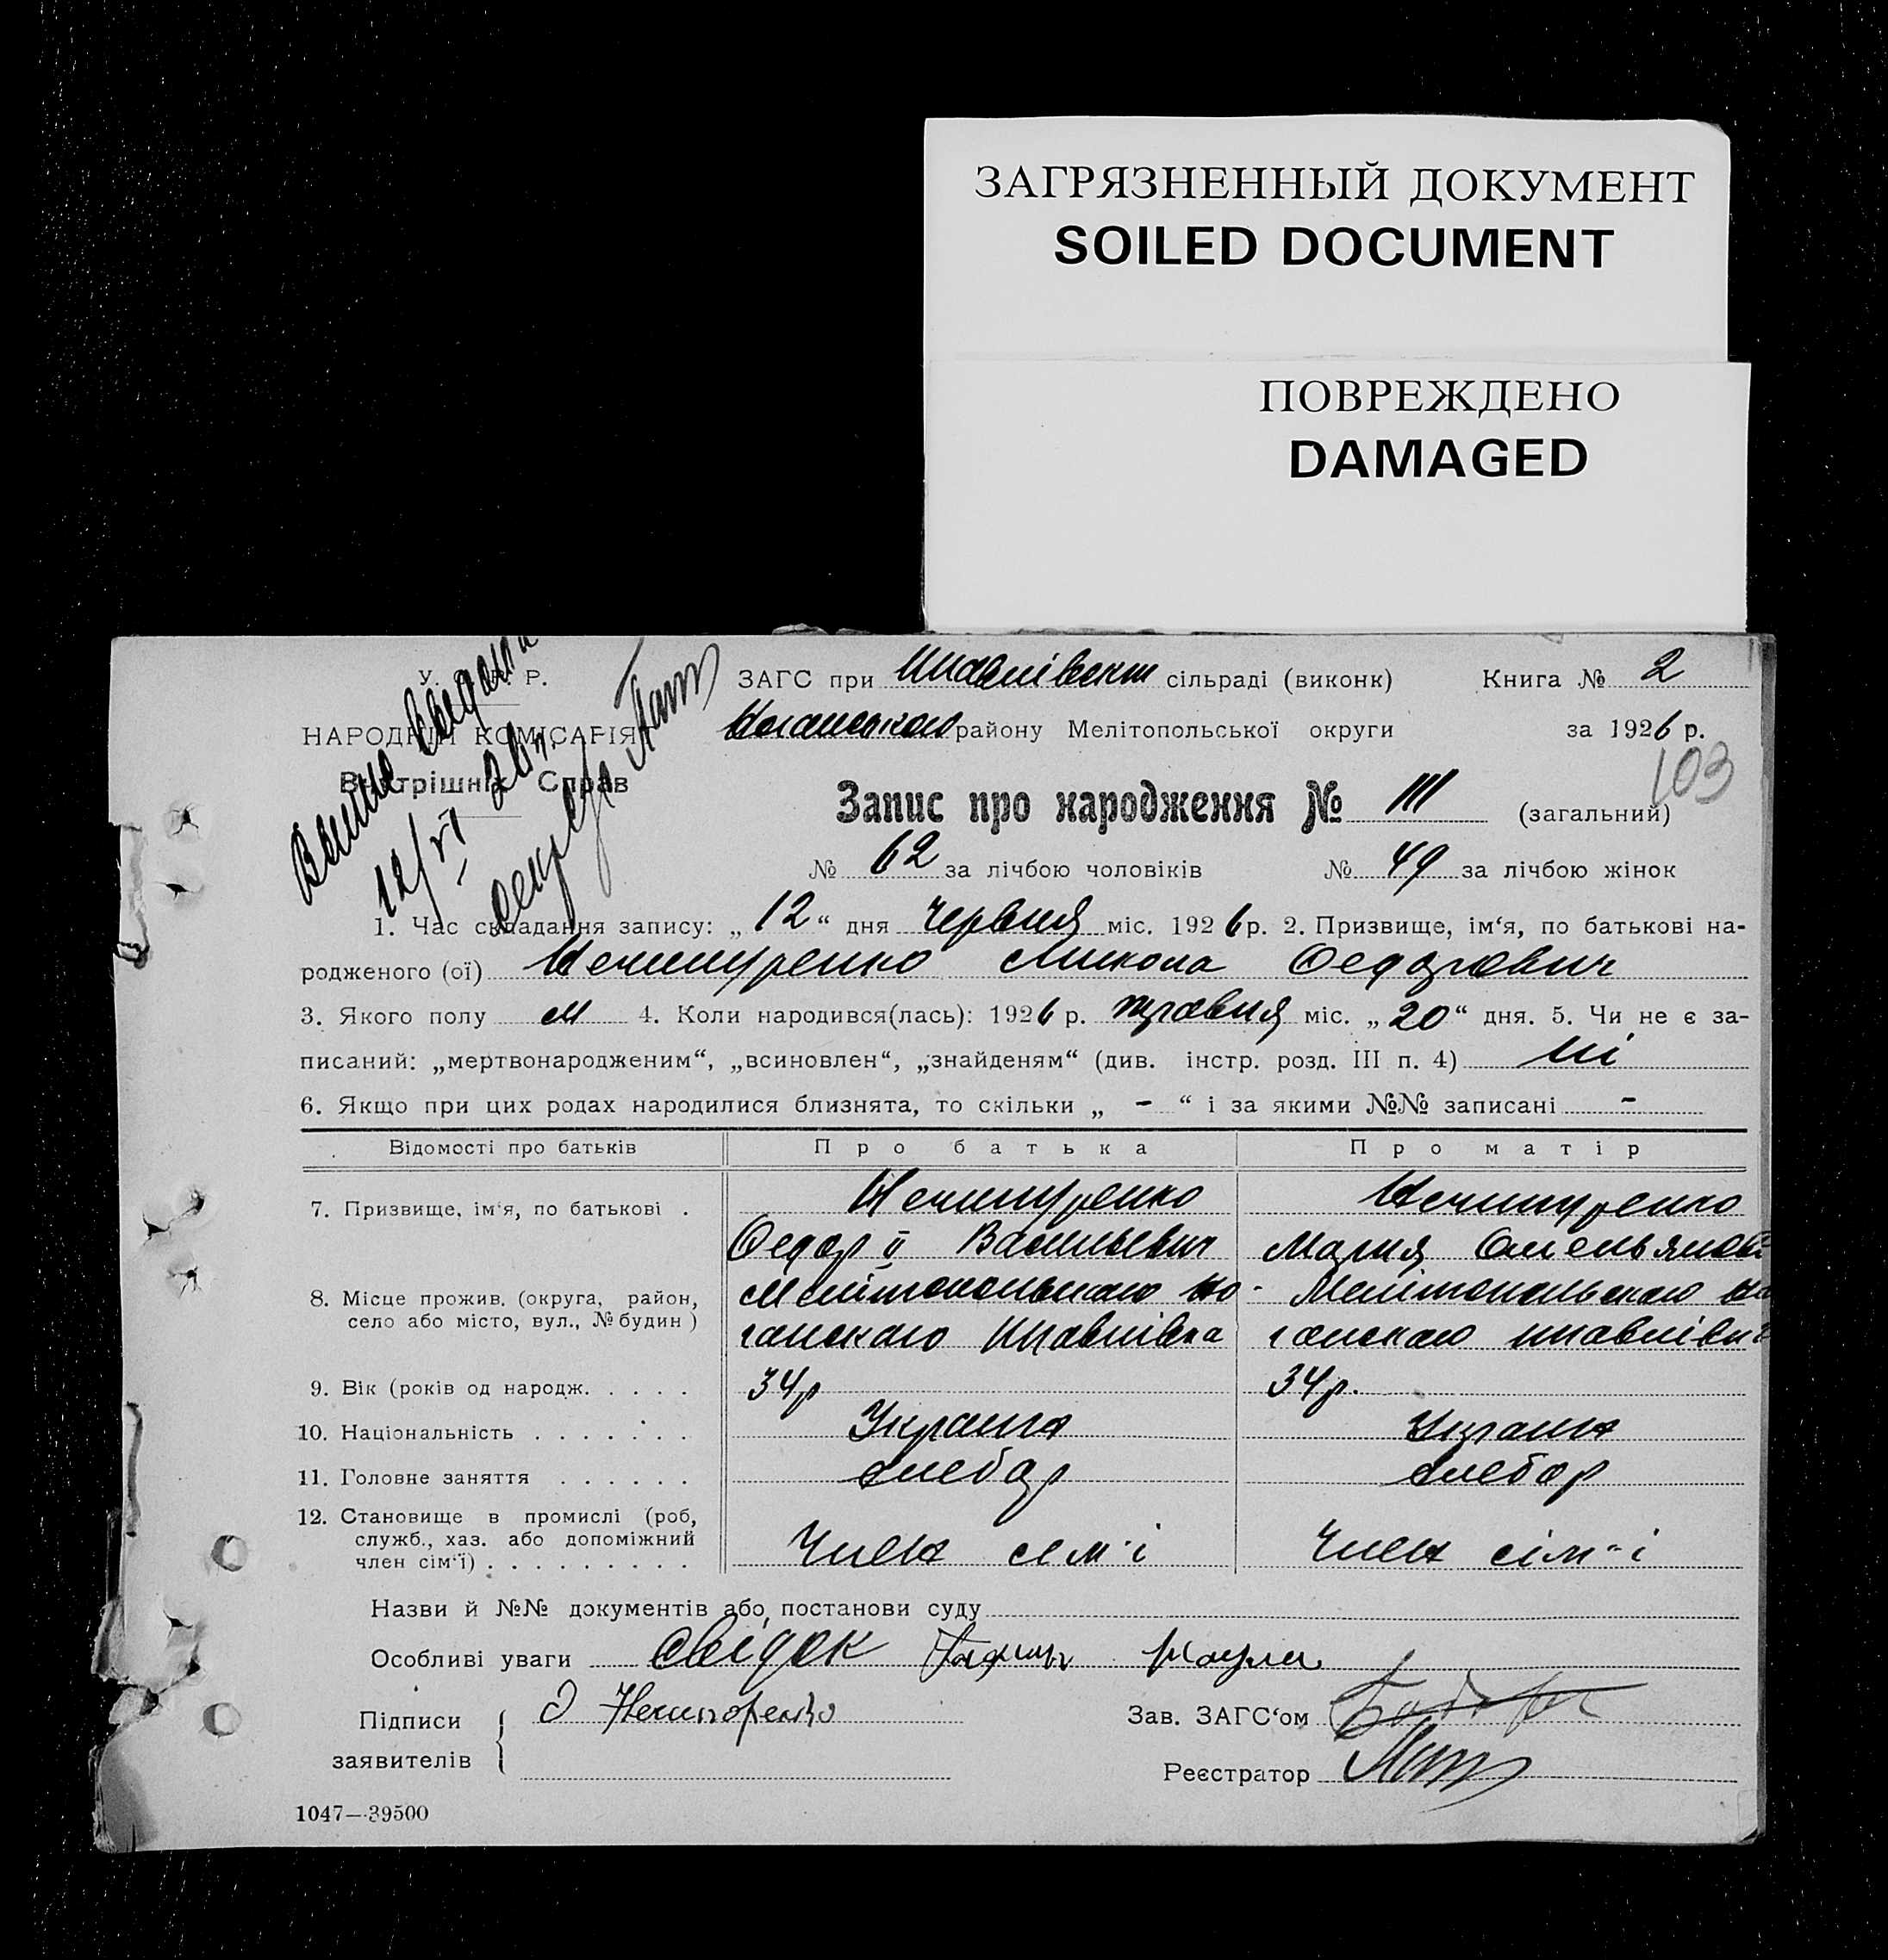 ЗАГРЯЗНЕННЫЙ ДОКУМЕНТ
SOILED DOCUMENT
ПОВРЕЖДЕНО
DAMAGED
У. С. Р. Р.
НАРОДНІЙ КОМІСАРІЯТ
Внутрішніх Справ
12/VI 26 р.
ЗАГС при сільраді (виконк) Книга № 2
району Мелітопольської округи за 1926 р.
103
Запис про народження № 111 (загальний)
№ 62 за лічбою чоловіків № 49 за лічбою жінок
1. Час складання запису: „12“ дня червня міс. 1926 р. 2. Призвище, ім‘я, по батькові на-
родженого (ої) Нечипуренко Микола Федорович
3. Якого полу м 4. Коли народився(лась): 1926 р. травня міс. „20“ дня. 5. Чи не є за-
писаний: „мертвонародженим“, „всиновлен“, „знайденям“ (див. інстр. розд. III п. 4) ні
6. Якщо при цих родах народилися близнята, то скільки „ - “ і за якими №№ записані -
Відомості про батьків Про батька Про матір
7. Призвище, ім‘я, по батькові . Нечипуренко Нечипуренко
Федор Васильевич Мария Омельянов
8. Місце прожив. (округа, район, Мелітопольського Но- Мелітопольского Но
село або місто, вул., № будин) ганского ганского
9. Вік (років од народж. . . . . 34 р 34 р.
10. Національність . . . . . . . Украин Украин
11. Головне заняття . . . . . . хлебор хлебор
12. Становище в промислі (роб,
служб., хаз. або допоміжний
член сім‘ї) . . . . . . . . . Член сем‘і Член сім‘і
Назви й №№ документів або постанови суду
Особливі уваги свідок
Підписи Нечипоренко Зав. ЗАГС‘ом
заявителів
Реєстратор
1047—39500